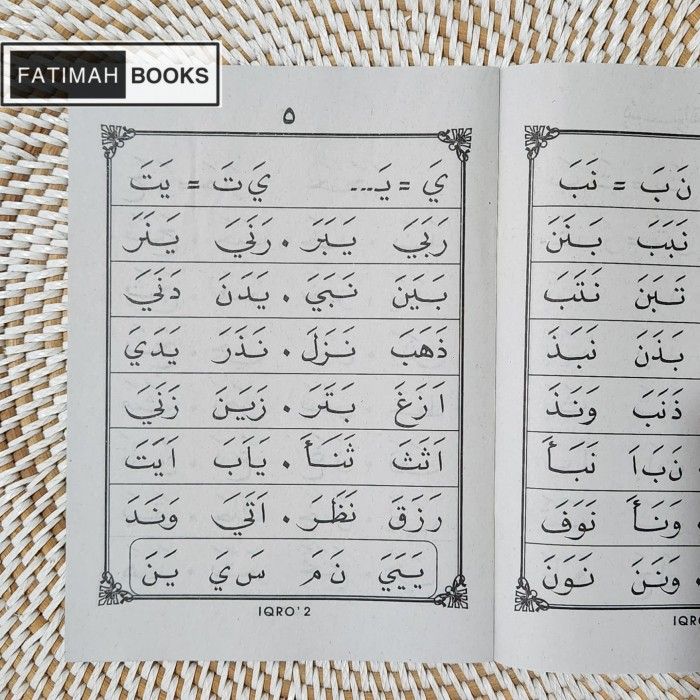 FATIMAH BOOKS
٥
يَ = يَـ... يَ تَ = يَتَ
رَبَيَ يَبَرَ . رَنَيَ يَنَرَ
بَيَنَ نَبَيَ . يَدَنَ دَنَيَ
ذَهَبَ نَزَلَ . نَذَرَ يَدَيَ
اَزَغَ بَتَرَ . زَيَنَ زَنَيَ
اَثَثَ ثَنَأَ . يَاَبَ اَيَتَ
رَزَقَ نَظَرَ . اَتَيَ وَنَدَ
يَيَيَ نَ مَ سَ يَ يَنَ
IQRO' 2
نَ بَ = نَبَ
نَبَبَ بَنَنَ
تَبَنَ نَتَبَ
بَذَنَ نَبَذَ
ذَنَبَ وَنَذَ
نَ بَ اَ نَبَأَ
وَنَأَ نَوَفَ
وَنَنَ نَوَنَ